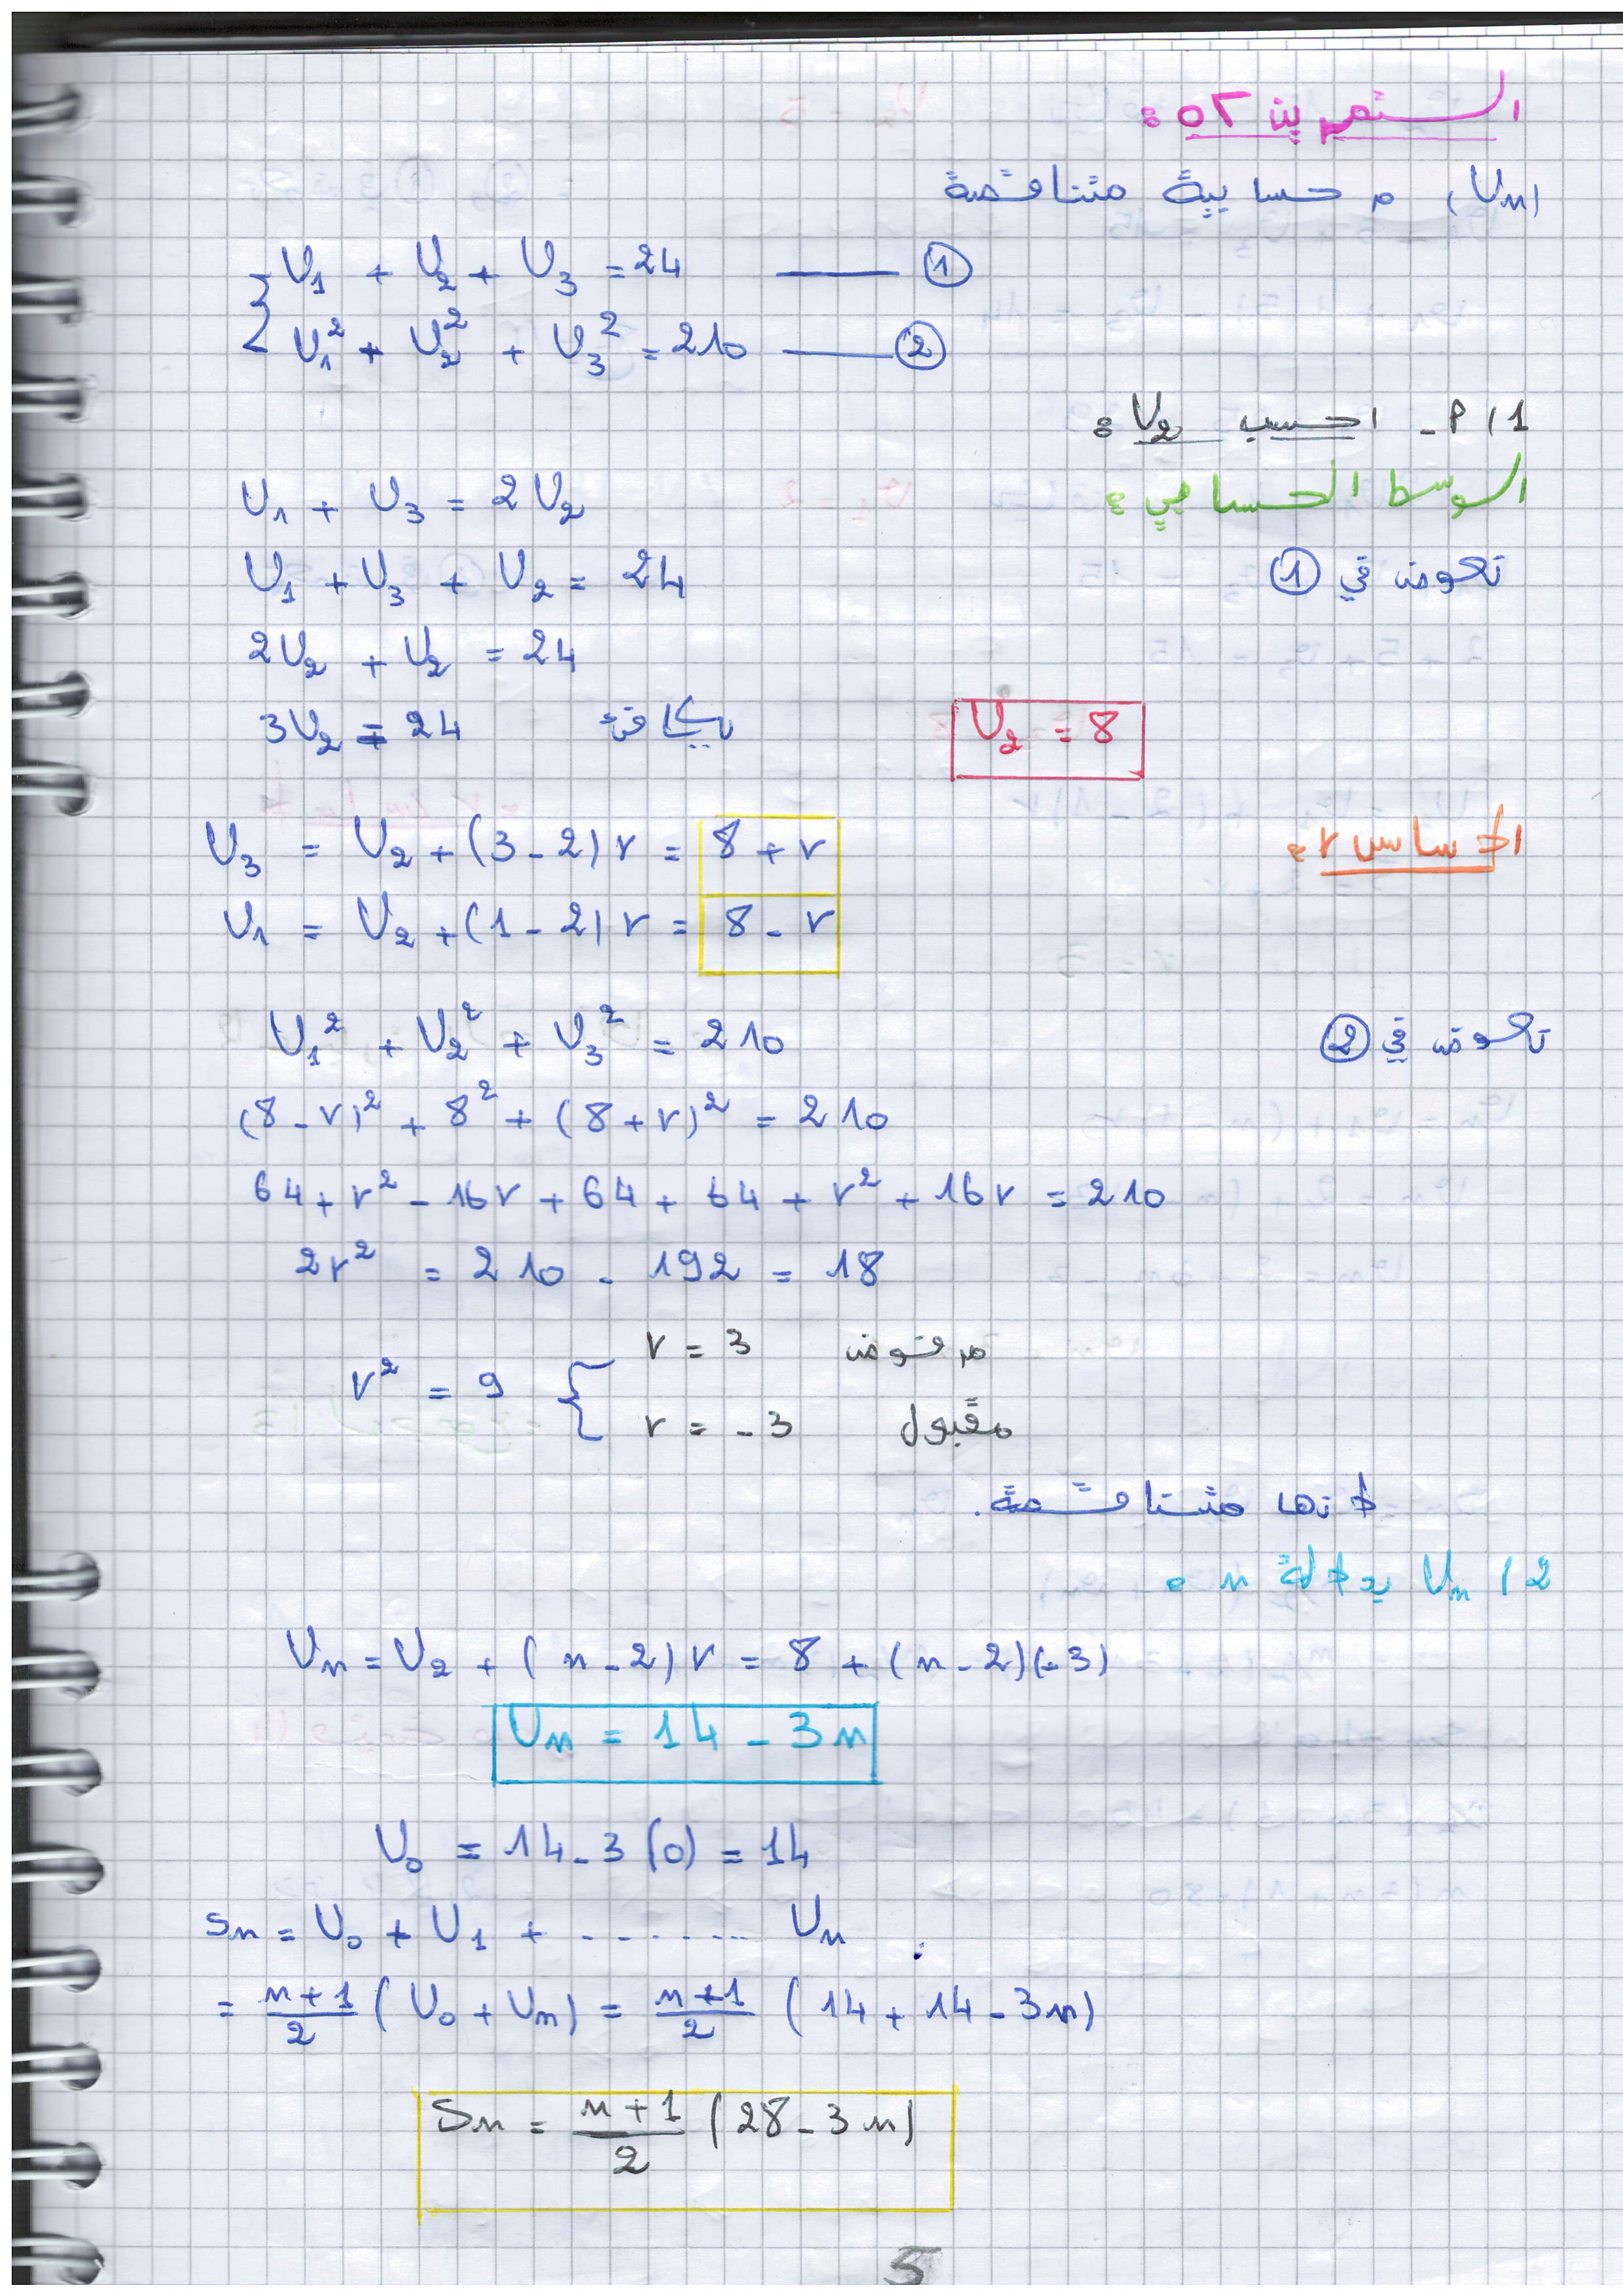 التمرين 02 :
(Un) م حسابية متناقصة
U1 + U2 + U3 = 24 —— ①
U1² + U2² + U3² = 210 —— ②
1/ أ - احسب U2 :
الوسط الحسابي : U1 + U3 = 2U2
نعوض في ① U1 + U3 + U2 = 24
2U2 + U2 = 24
3U2 = 24 يكافئ U2 = 8
الأساس r : U3 = U2 + (3-2)r = 8 + r
U1 = U2 + (1-2)r = 8 - r
نعوض في ② U1² + U2² + U3² = 210
(8-r)² + 8² + (8+r)² = 210
64 + r² - 16r + 64 + 64 + r² + 16r = 210
2r² = 210 - 192 = 18
r² = 9 { r = 3 مرفوض
r = -3 مقبول
لأنها متناقصة.
2/ Un بدلالة n :
Un = U2 + (n-2)r = 8 + (n-2)(-3)
Un = 14 - 3n
U0 = 14 - 3(0) = 14
Sn = U0 + U1 + ........ Un
= n+1/2 (U0 + Un) = n+1/2 (14 + 14 - 3n)
Sn = n+1/2 (28 - 3n)
5